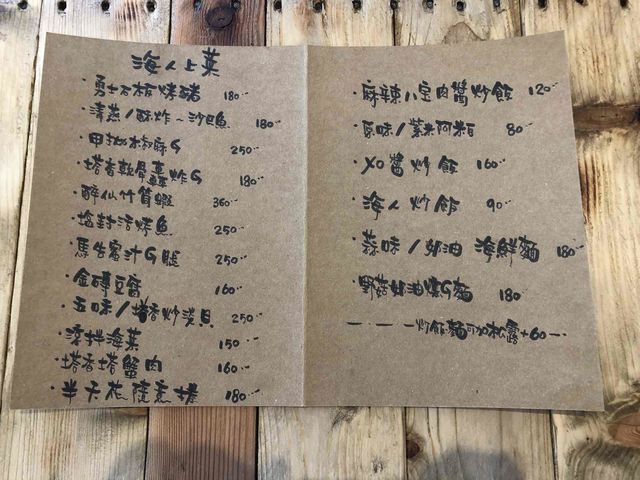 海人上菜
·勇士石板烤豬 180
·清蒸/酥炸~沙巴魚 180
·甲批椒麻G 250
·塔香軟骨蟲炸G 180
·醉仙竹筒蝦 360
·塩封活烤魚 250
·馬告蜜汁G腿 250
·金磚豆腐 160
·五味/塔香炒淡貝 250
·涼拌海菜 150
·塔香塔蟹肉 160
·半天花隨意搭 180
·麻辣小卷肉醬炒飯 120
·原味/紫米阿粨 80
·XO醬炒飯 160
·海人炒飯 90
·蒜味/奶油 海鮮麵 180
·野菇奶油燻G麵 180
炒飯麵可加松露+60